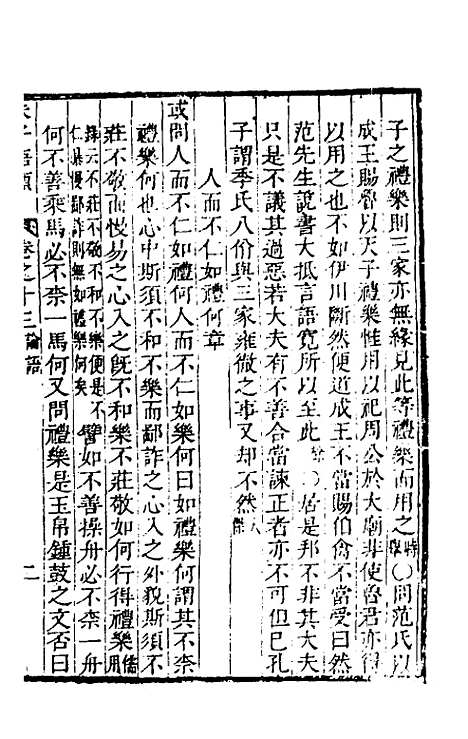 子之禮樂則三家亦無緣見此等禮樂而用之時舉〇問范氏以
成王賜魯以天子禮樂惟用以祀周公於大廟非使魯君亦得
以用之也不如伊川斷然便道成王不當賜伯禽不當受曰然
范先生說書大抵言語寬所以至此〇居是邦不非其大夫
只是不議其過惡若大夫有不善合當諫正者亦不可但已孔
子謂季氏八佾與三家雍徹之事又却不然
人而不仁如禮何章
或問人而不仁如禮何人而不仁如樂何曰如禮樂何謂其不柰
禮樂何也心中斯須不和不樂而鄙詐之心入之外貌斯須不
莊不敬而慢易之心入之旣不和樂不莊敬如何行得禮樂用
錄云不莊不敬不和不樂便是不仁暴慢鄙詐則無如禮樂何矣 譬如不善操舟必不柰一舟
何不善乘馬必不柰一馬何又問禮樂是玉帛鍾鼓之文否曰
朱子語類 卷之二十五 論語 二